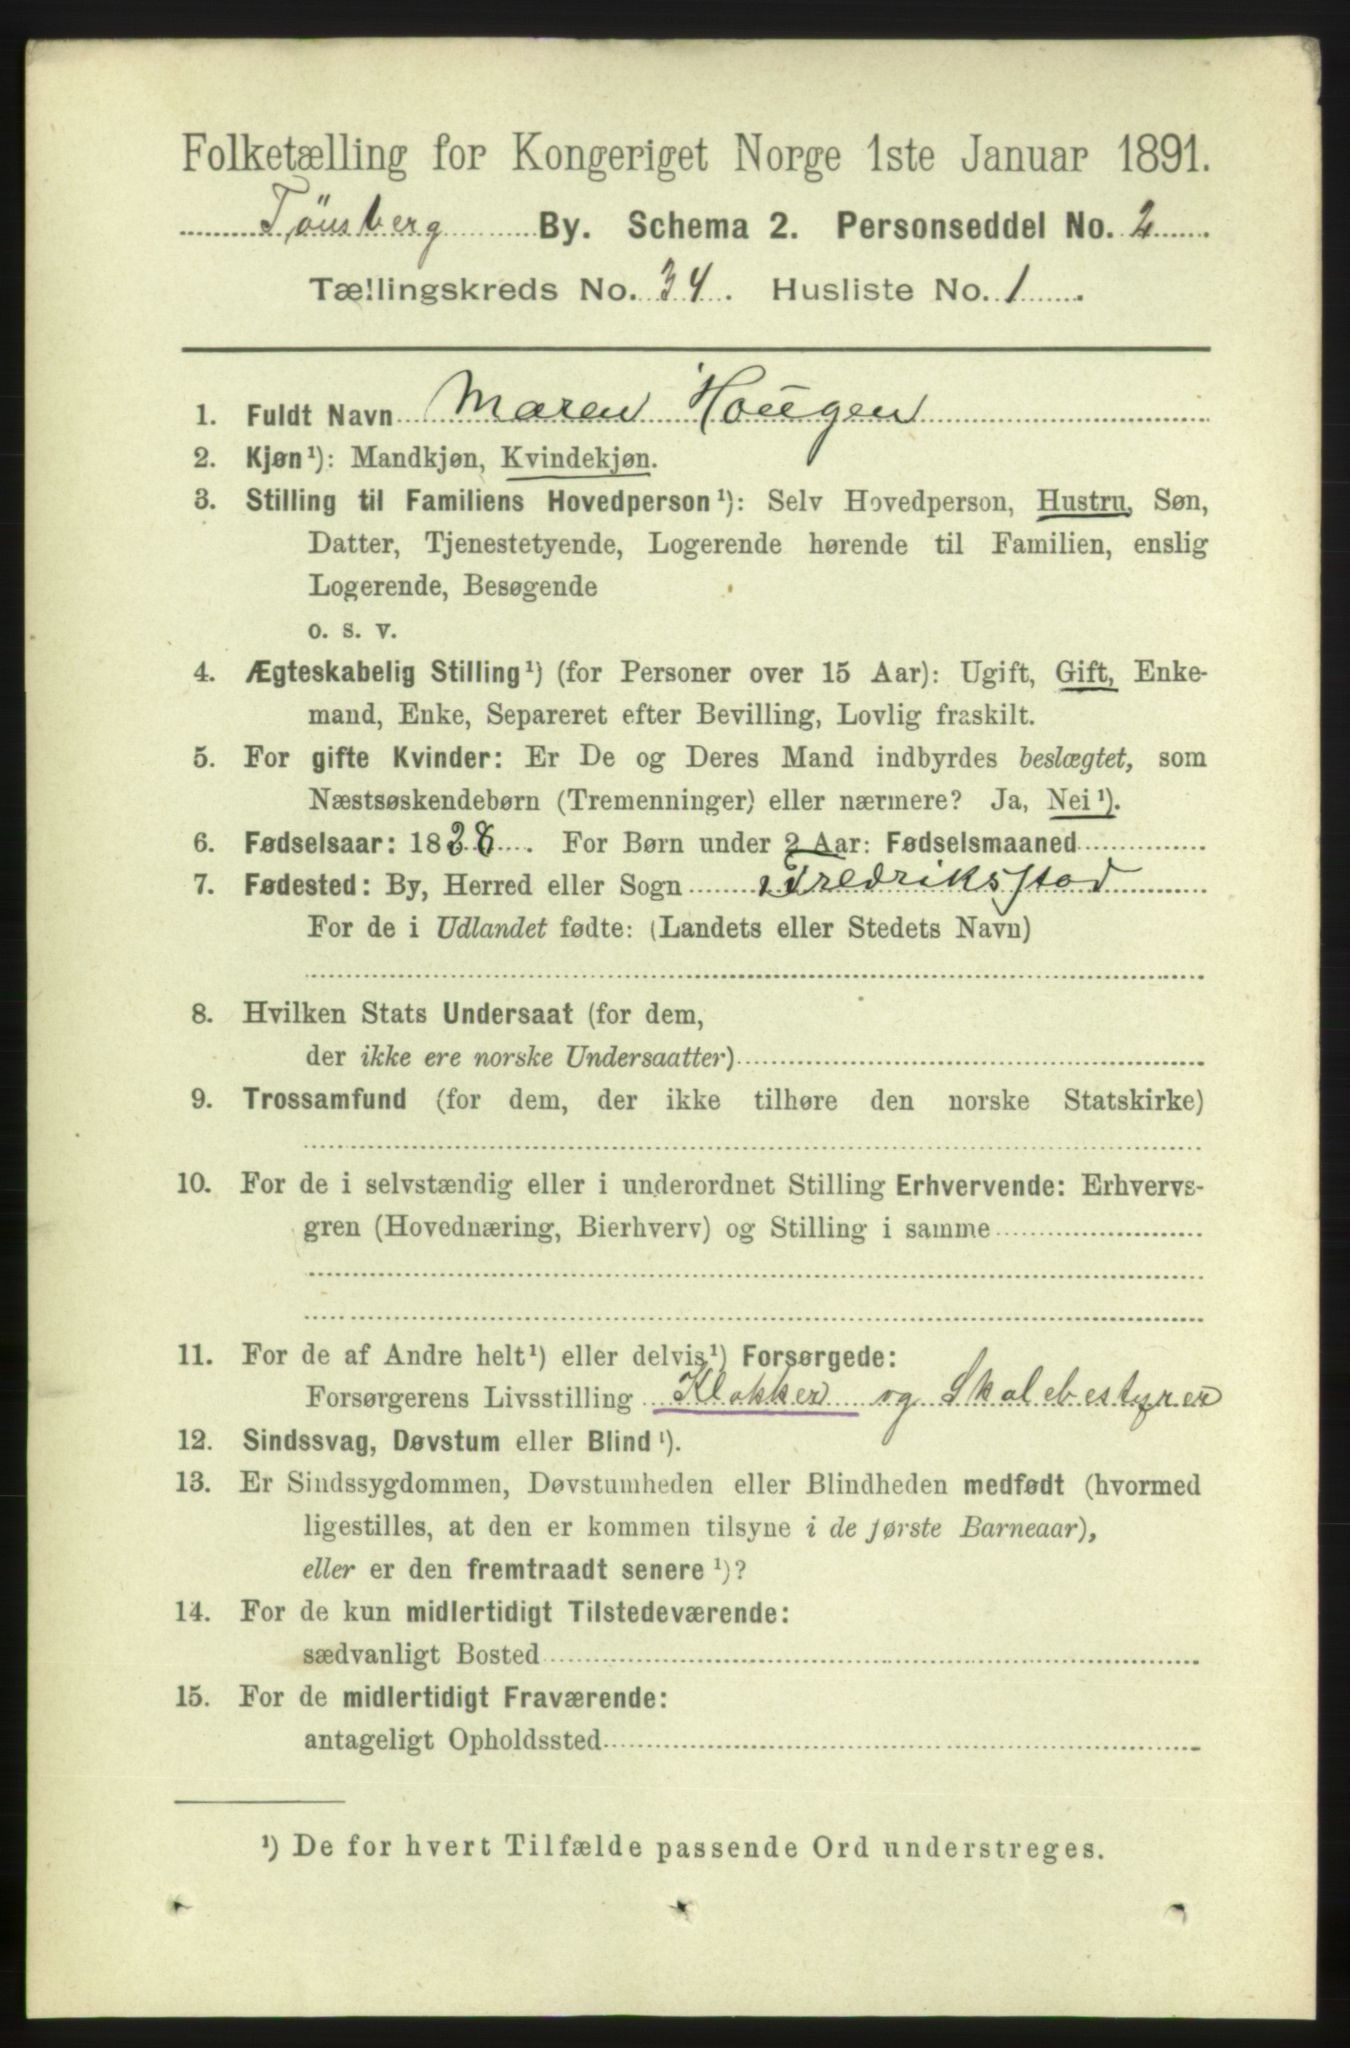 Folketælling for Kongeriget Norge 1ste Januar 1891.
Tönsberg By. Schema 2. Personseddel No. 2
Tællingskreds No. 34. Husliste No. 1
1. Fuldt Navn Maren Hougen
2. Kjøn ¹): Mandkjøn, Kvindekjøn.
3. Stilling til Familiens Hovedperson ¹): Selv Hovedperson, Hustru, Søn,
Datter, Tjenestetyende, Logerende hørende til Familien, enslig
Logerende, Besøgende
o. s. v.
4. Ægteskabelig Stilling ¹) (for Personer over 15 Aar): Ugift, Gift, Enke-
mand, Enke, Separeret efter Bevilling, Lovlig fraskilt.
5. For gifte Kvinder: Er De og Deres Mand indbyrdes beslægtet, som
Næstsøskendebørn (Tremenninger) eller nærmere? Ja, Nei ¹).
6. Fødselsaar: 1828. For Børn under 2 Aar: Fødselsmaaned
7. Fødested: By, Herred eller Sogn Fredriksstad
For de i Udlandet fødte: (Landets eller Stedets Navn)
8. Hvilken Stats Undersaat (for dem,
der ikke ere norske Undersaatter)
9. Trossamfund (for dem, der ikke tilhøre den norske Statskirke)
10. For de i selvstændig eller i underordnet Stilling Erhvervende: Erhvervs-
gren (Hovednæring, Bierhverv) og Stilling i samme
11. For de af Andre helt ¹) eller delvis ¹) Forsørgede:
Forsørgerens Livsstilling Klokker og Skolebestyrer
12. Sindssvag, Døvstum eller Blind ¹).
13. Er Sindssygdommen, Døvstumheden eller Blindheden medfødt (hvormed
ligestilles, at den er kommen tilsyne i de første Barneaar),
eller er den fremtraadt senere ¹)?
14. For de kun midlertidigt Tilstedeværende:
sædvanligt Bosted
15. For de midlertidigt Fraværende:
antageligt Opholdssted
¹) De for hvert Tilfælde passende Ord understreges.